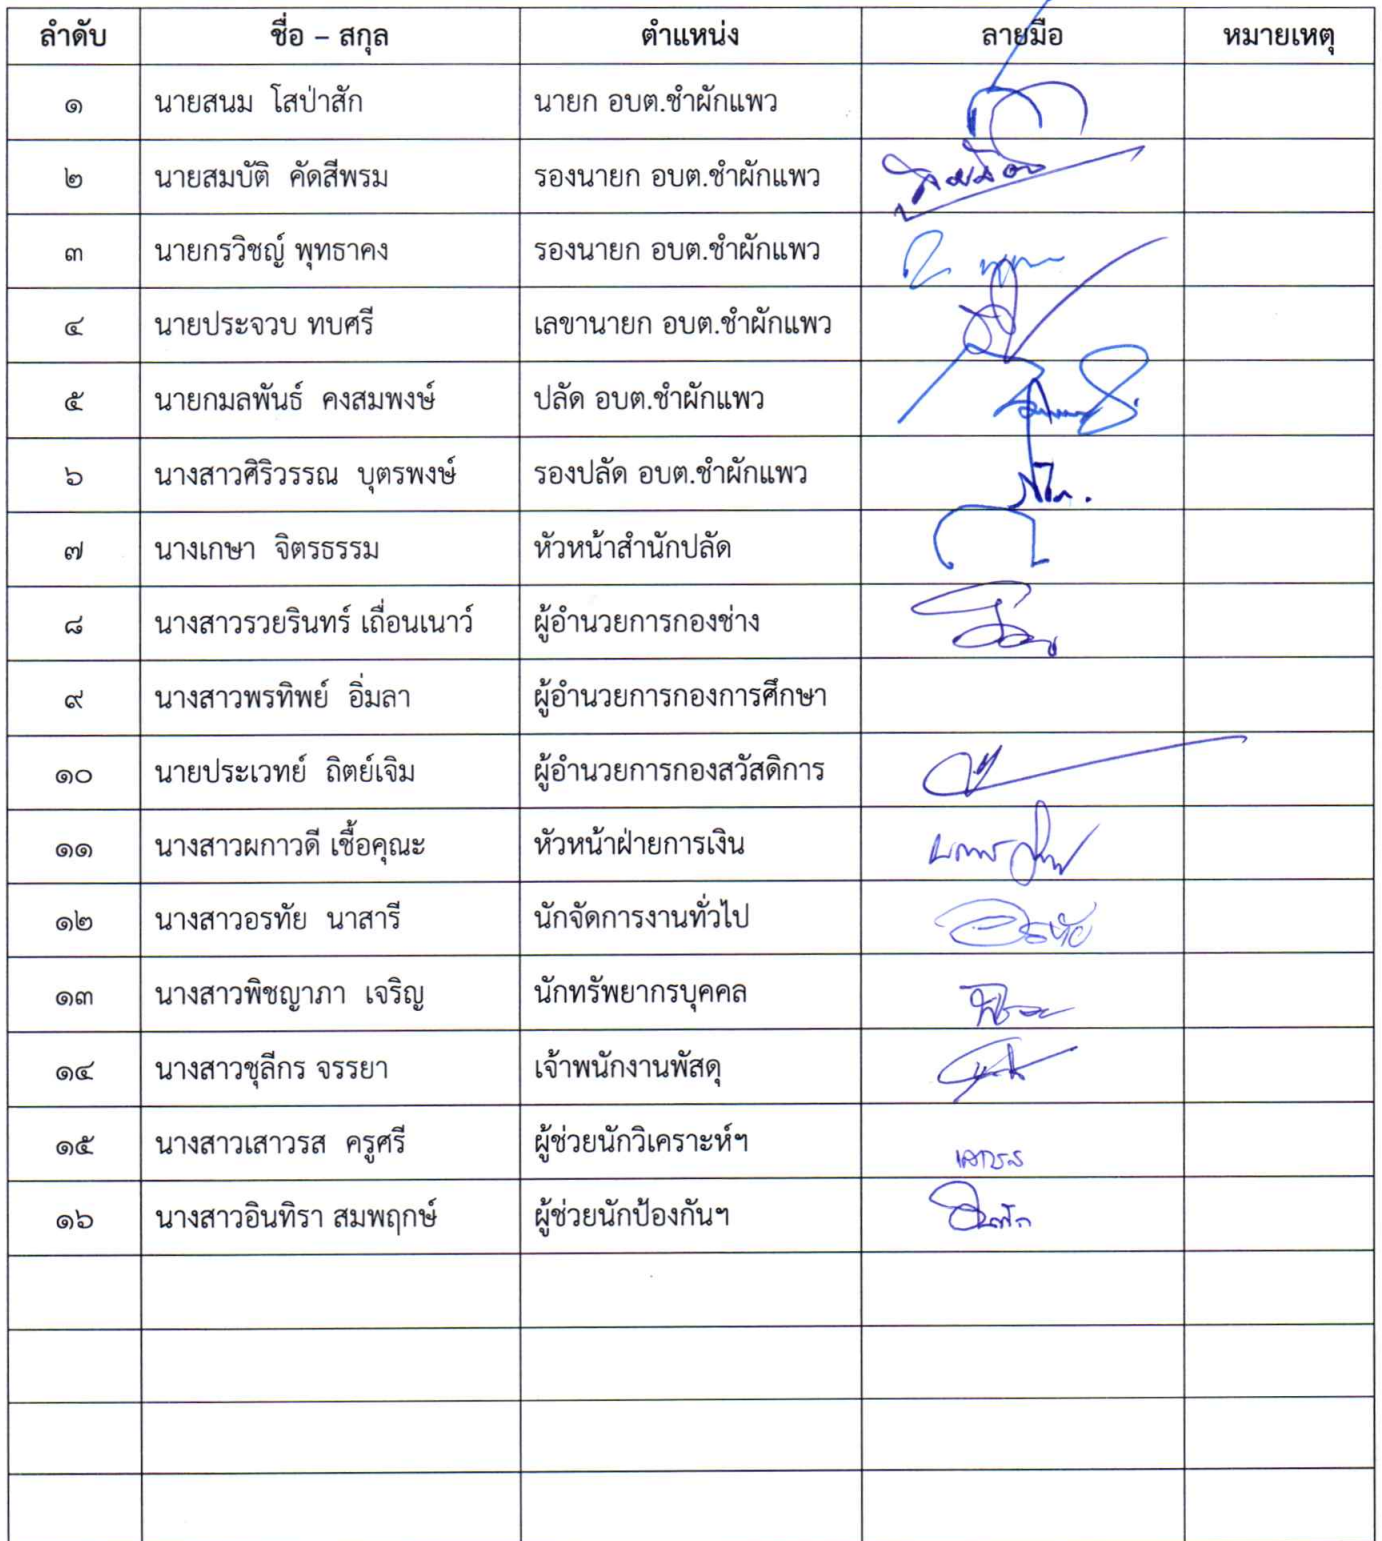 ลำดับ ชื่อ – สกุล ตำแหน่ง ลายมือ หมายเหตุ
๑ นายสนม โสป่าสัก นายก อบต.ชำผักแพว
๒ นายสมบัติ คัดสีพรม รองนายก อบต.ชำผักแพว
๓ นายกรวิชญ์ พุทธาคง รองนายก อบต.ชำผักแพว
๔ นายประจวบ ทบศรี เลขานายก อบต.ชำผักแพว
๕ นายกมลพันธ์ คงสมพงษ์ ปลัด อบต.ชำผักแพว
๖ นางสาวศิริวรรณ บุตรพงษ์ รองปลัด อบต.ชำผักแพว
๗ นางเกษา จิตรธรรม หัวหน้าสำนักปลัด
๘ นางสาวรวยรินทร์ เถื่อนเนาว์ ผู้อำนวยการกองช่าง
๙ นางสาวพรทิพย์ อิ่มลา ผู้อำนวยการกองการศึกษา
๑๐ นายประเวทย์ ถิตย์เจิม ผู้อำนวยการกองสวัสดิการ
๑๑ นางสาวผกาวดี เชื้อคุณะ หัวหน้าฝ่ายการเงิน
๑๒ นางสาวอรทัย นาสารี นักจัดการงานทั่วไป อรทัย
๑๓ นางสาวพิชญาภา เจริญ นักทรัพยากรบุคคล
๑๔ นางสาวชุลีกร จรรยา เจ้าพนักงานพัสดุ
๑๕ นางสาวเสาวรส ครูศรี ผู้ช่วยนักวิเคราะห์ฯ เสาวรส
๑๖ นางสาวอินทิรา สมพฤกษ์ ผู้ช่วยนักป้องกันฯ